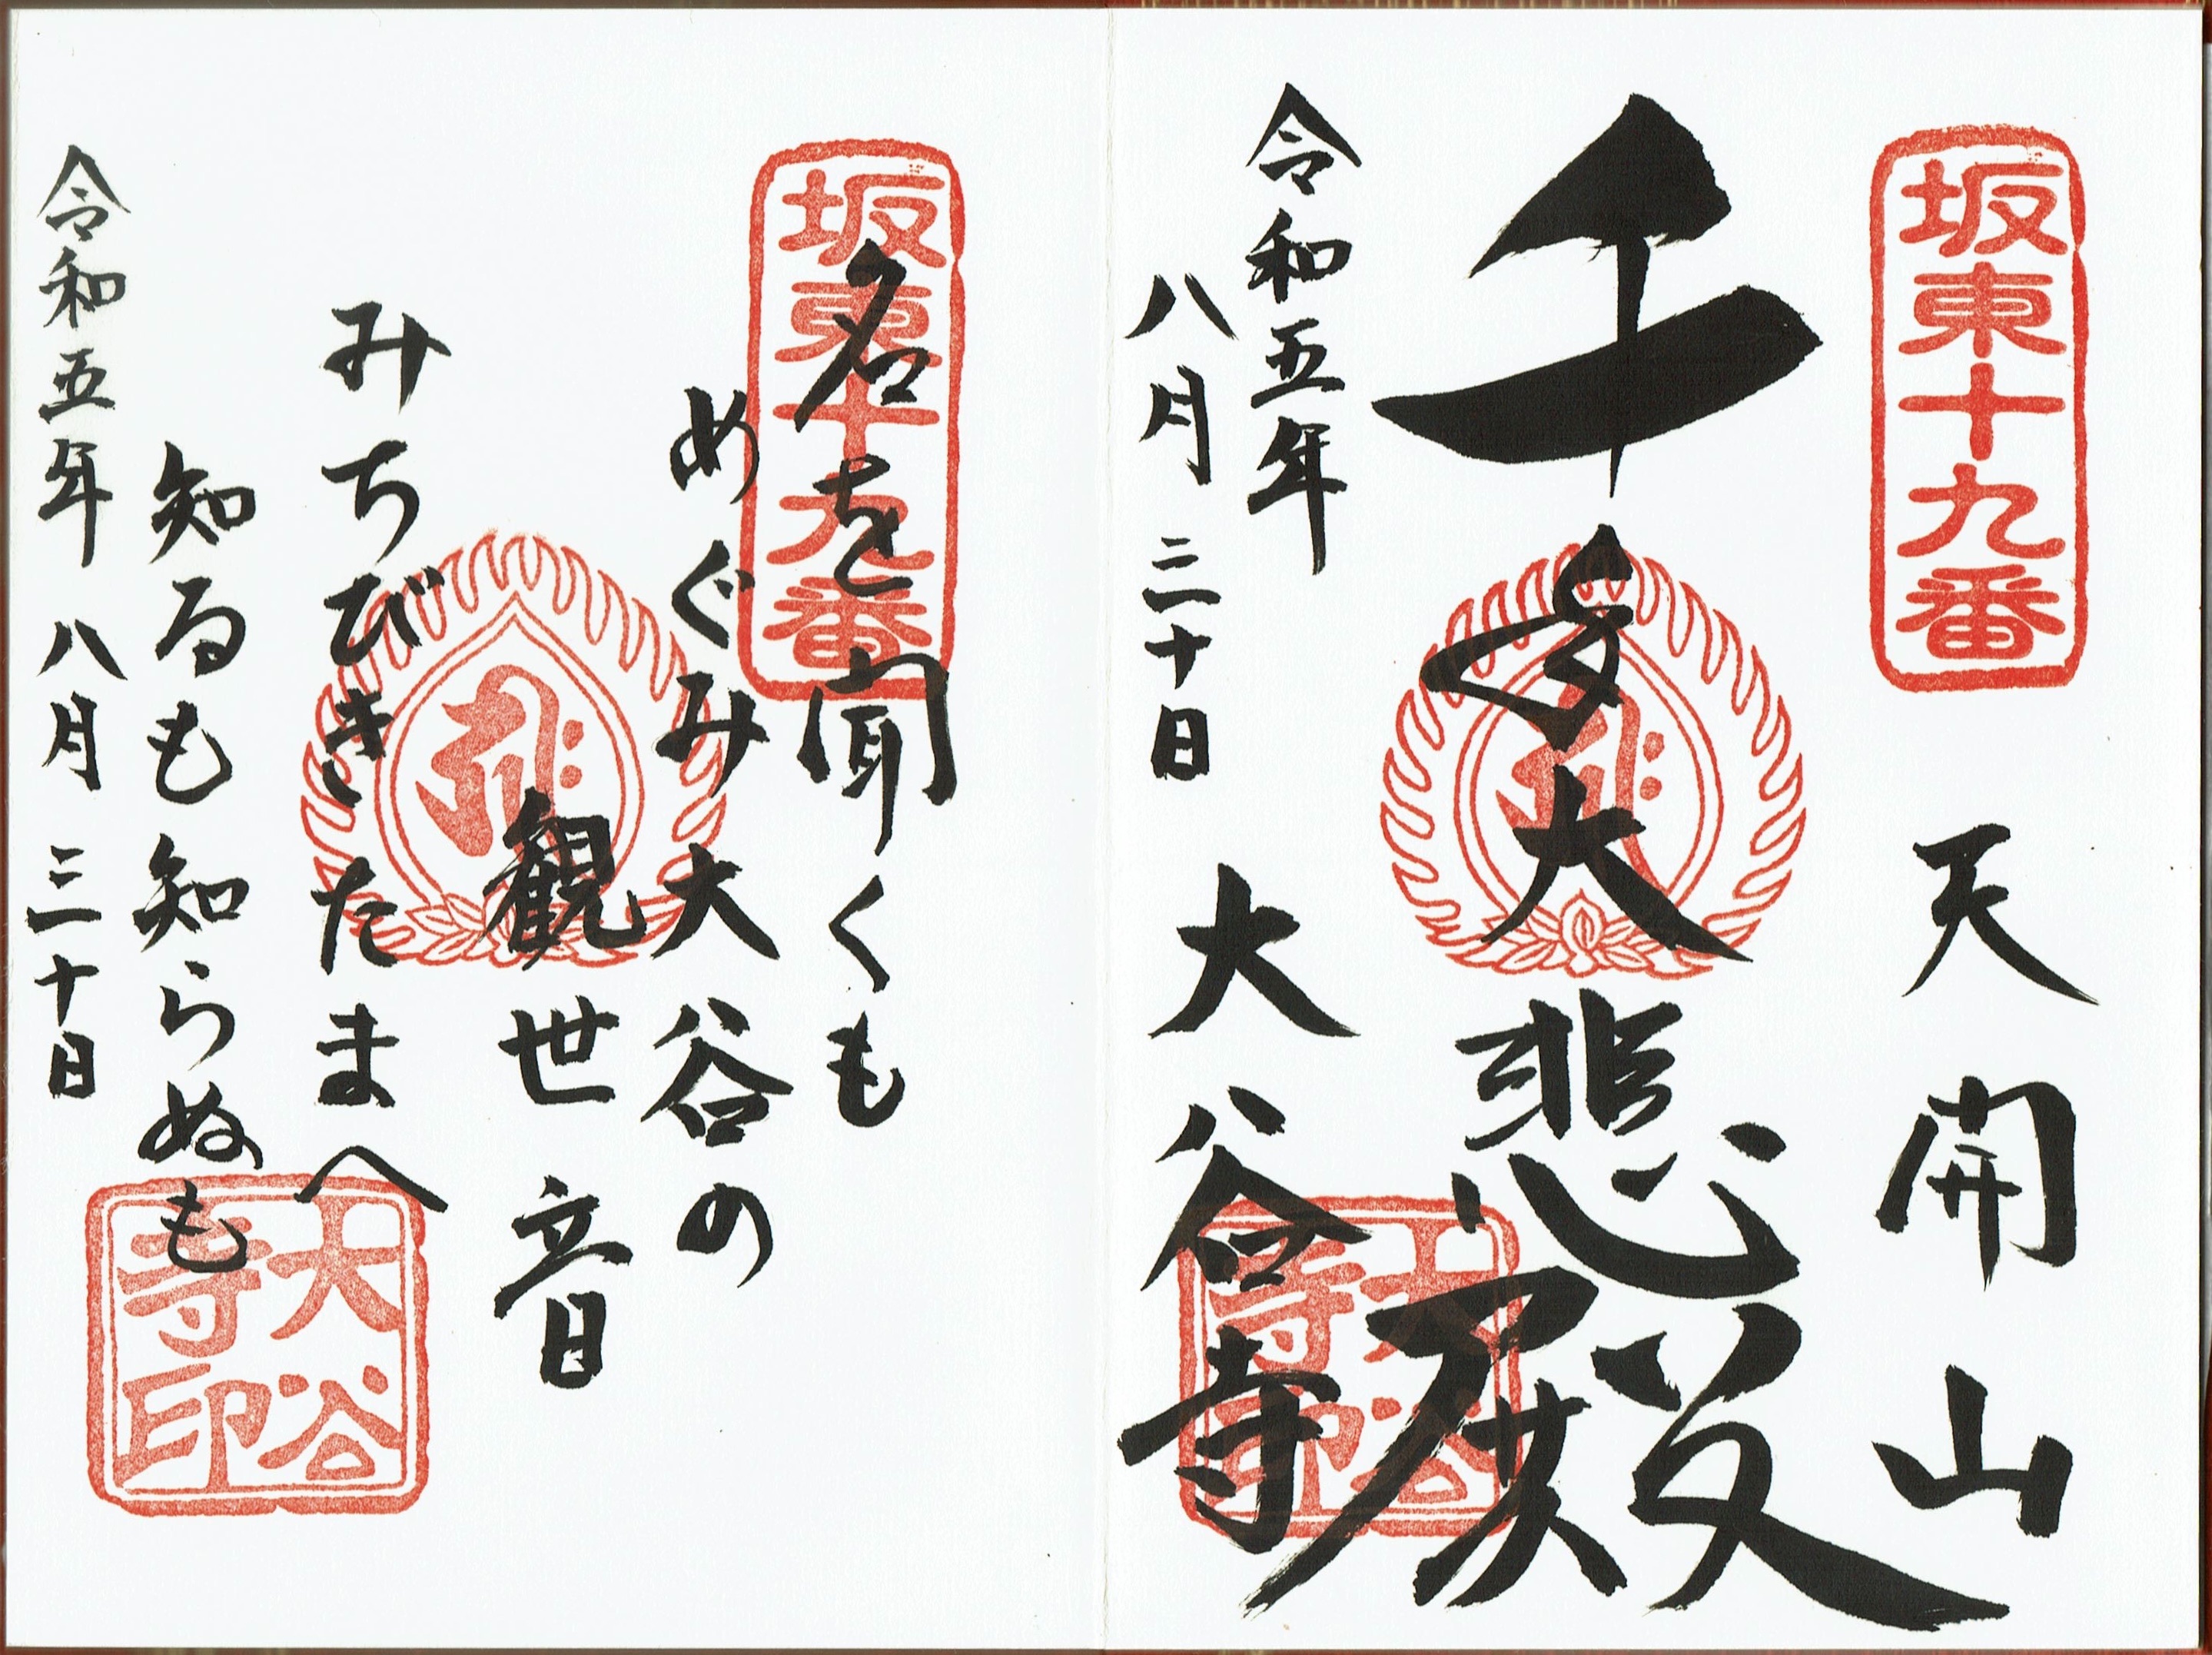 坂東十九番
天開山
千手大悲殿
令和五年
八月三十日
大谷寺
大谷寺印
坂東十九番
名を聞くも
めぐみ大谷の
観世音
みちびきたまへ
知るも知らぬも
令和五年八月三十日
大谷寺印